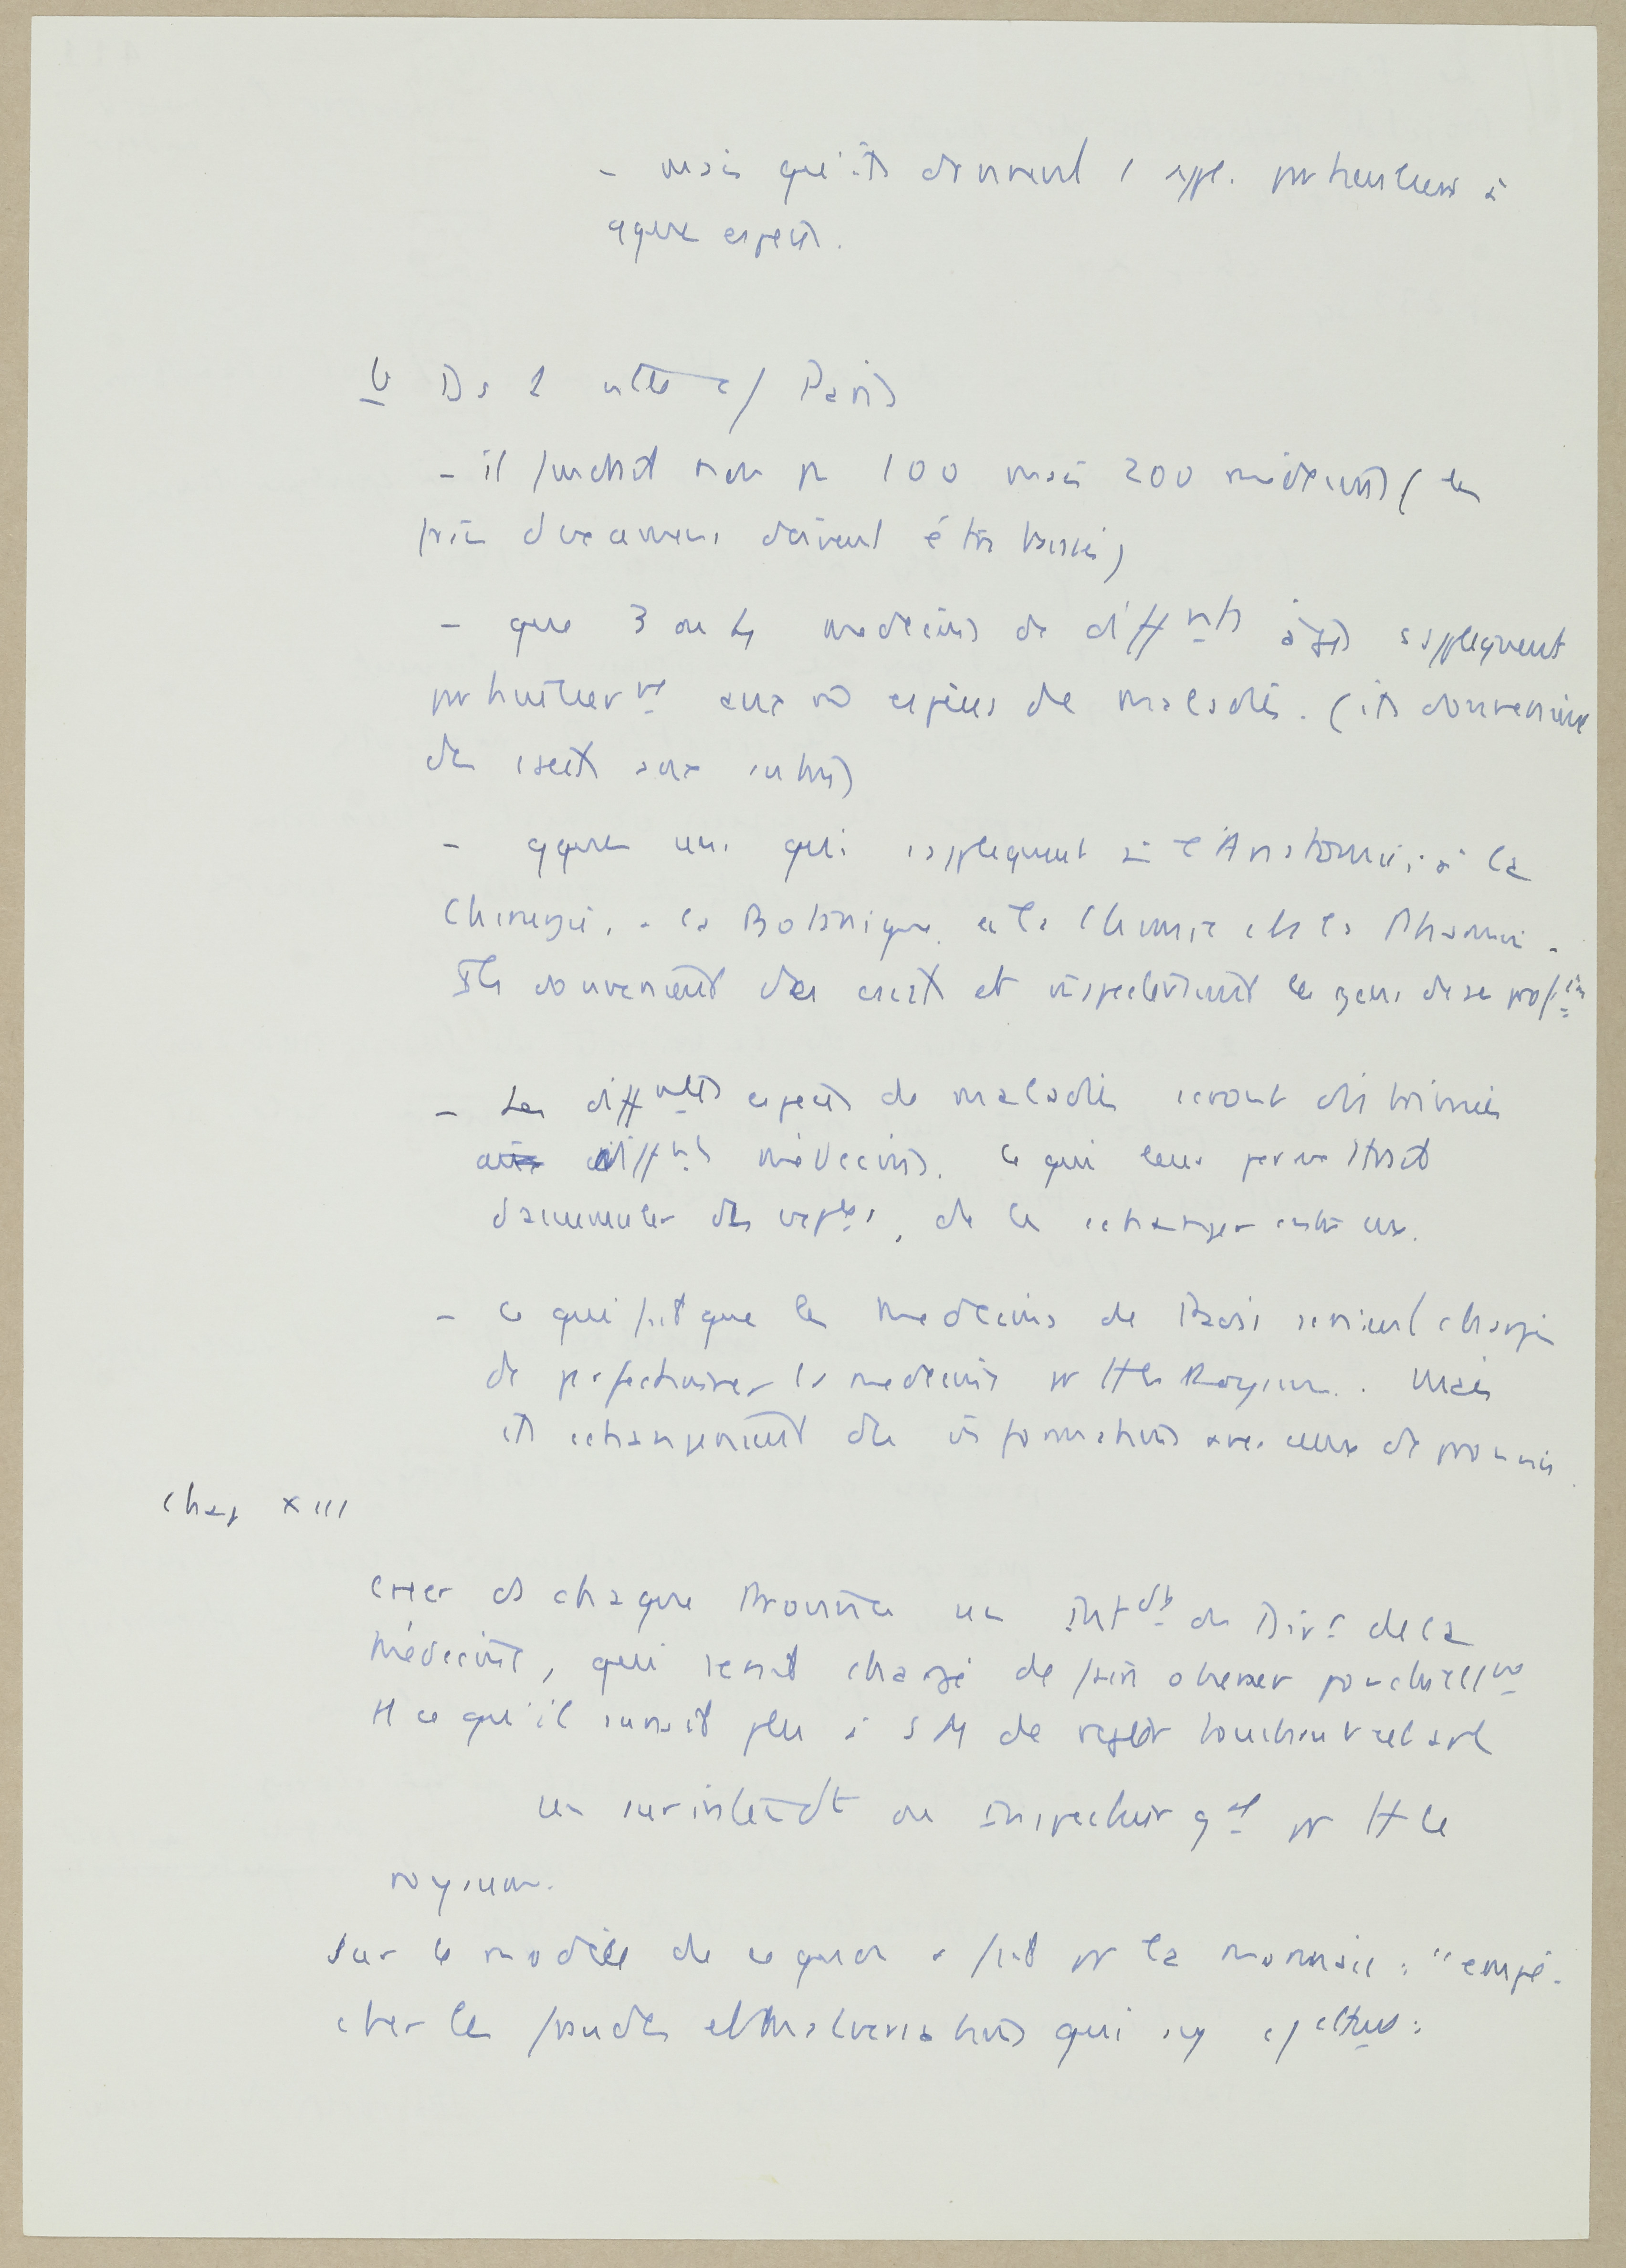 - mais qu'ils donnent 1 appl. particulière à
qques espèces.
b Ds 1 ville c/ Paris
- il faudrait non pas 100 mais 200 médecins (les
prix d'examens doivent ê très baissés)
- que 3 ou 4 medecins de diffnts âges s'appliquent
particulierᵗ aux espèces de maladies. (ils donneraient
des avis aux autres)
- qques uns qui s'appliquent à l'Anatomie, à la
Chirurgie, à la Botanique, à la Chimie et à la Pharmacie.
Ils donneraient des avis et inspecteraient les gens de ces profns
- Les diffntes espèces de maladies seront distribuées
diffnts médecins. Ce qui leur permettrait
d'accumuler des règles, de les echanger entre eux.
- Ce qui fait que les medecins de Paris seraient chargés
de perfectionner la medecine pr tt le Royaume. Mais
ils echangeraient des informations avec ceux de province.
Chap XIII
Créer ds chaque Province un Intdt ou Dirr de la
Médecine, qui serait chargé de faire observer ponctuellt
tt ce qu'il aurait plu à S M de régler touchant cet art
un surintendt ou Inspecteur gal pr tt le
royaume.
Sur le modèle de ce qu'on a fait pr la monnaie : "empê-
cher les fraudes et malversations qui s'y :